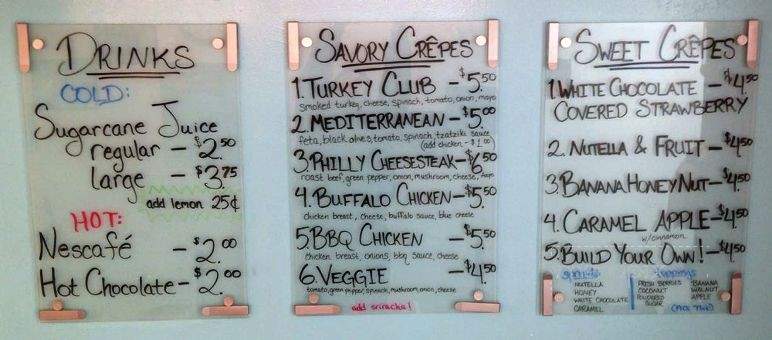 DRINKS
COLD:
Sugarcane Juice
regular - $2.50
large - $3.75
add lemon 25¢
HOT:
Nescafé - $2.00
Hot Chocolate - $2.00
SAVORY CRÊPES
1. TURKEY CLUB - $5.50
smoked turkey, cheese, spinach, tomato, onion, mayo
2. MEDITERRANEAN - $5.00
feta, black olives, tomato, spinach, tzatziki sauce
(add chicken - $1.00)
3. PHILLY CHEESESTEAK - $6.50
roast beef, green pepper, onion, mushroom, cheese, mayo
4. BUFFALO CHICKEN - $5.50
chicken breast, cheese, buffalo sauce, blue cheese
5. BBQ CHICKEN - $5.50
chicken breast, onions, bbq sauce, cheese
6. VEGGIE - $4.50
tomato, green pepper, spinach, mushroom, onion, cheese
add sriracha!
SWEET CRÊPES
1. WHITE CHOCOLATE - $4.50
COVERED STRAWBERRY
2. NUTELLA & FRUIT - $4.50
3. BANANA HONEY NUT - $4.50
4. CARAMEL APPLE - $4.50
w/cinnamon
5. BUILD YOUR OWN! - $4.50
spreads
NUTELLA
HONEY
WHITE CHOCOLATE
CARAMEL
toppings
FRESH BERRIES
COCONUT
POWDERED
SUGAR
BANANA
WALNUT
APPLE